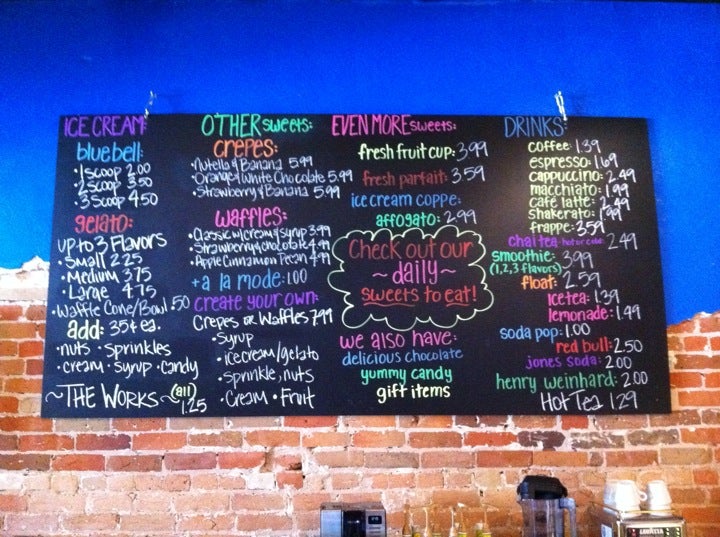 ICE CREAM:
bluebell:
• 1 Scoop 2.00
• 2 Scoop 3.50
• 3 Scoop 4.50
gelato:
up to 3 Flavors
• Small 2.25
• Medium 3.75
• Large 4.75
• Waffle Cone/Bowl .50
add: 35¢ ea.
• nuts • Sprinkles
• cream • syrup • candy
~THE WORKS~ (all) 1.25
OTHER sweets:
crepes:
• Nutella & Banana 5.99
• Orange & White Chocolate 5.99
• Strawberry & Banana 5.99
waffles:
• Classic w/cream & syrup 3.99
• Strawberry & chocolate 4.99
• Apple Cinnamon Pecan 4.99
+ a la mode: 1.00
create your own:
Crepes or Waffles 7.99
• Syrup
• ice cream/gelato
• Sprinkle, nuts
• Cream • Fruit
EVEN MORE sweets:
fresh fruit cup: 3.99
fresh parfait: 3.59
ice cream coppe:
affogato: 2.99
Check out our
~ daily ~
sweets to eat!
we also have:
delicious chocolate
yummy candy
gift items
DRINKS:
coffee: 1.39
espresso: 1.69
cappuccino: 2.49
macchiato: 1.99
cafe latte: 2.49
shakerato: 1.99
frappe: 3.59
chai tea: hot or cold: 2.49
smoothie: 3.99
(1,2,3 flavors)
float: 2.59
ice tea: 1.39
lemonade: 1.49
soda pop: 1.00
red bull: 2.50
jones soda: 2.00
henry weinhard: 2.00
Hot Tea 1.29
LAVAZZA